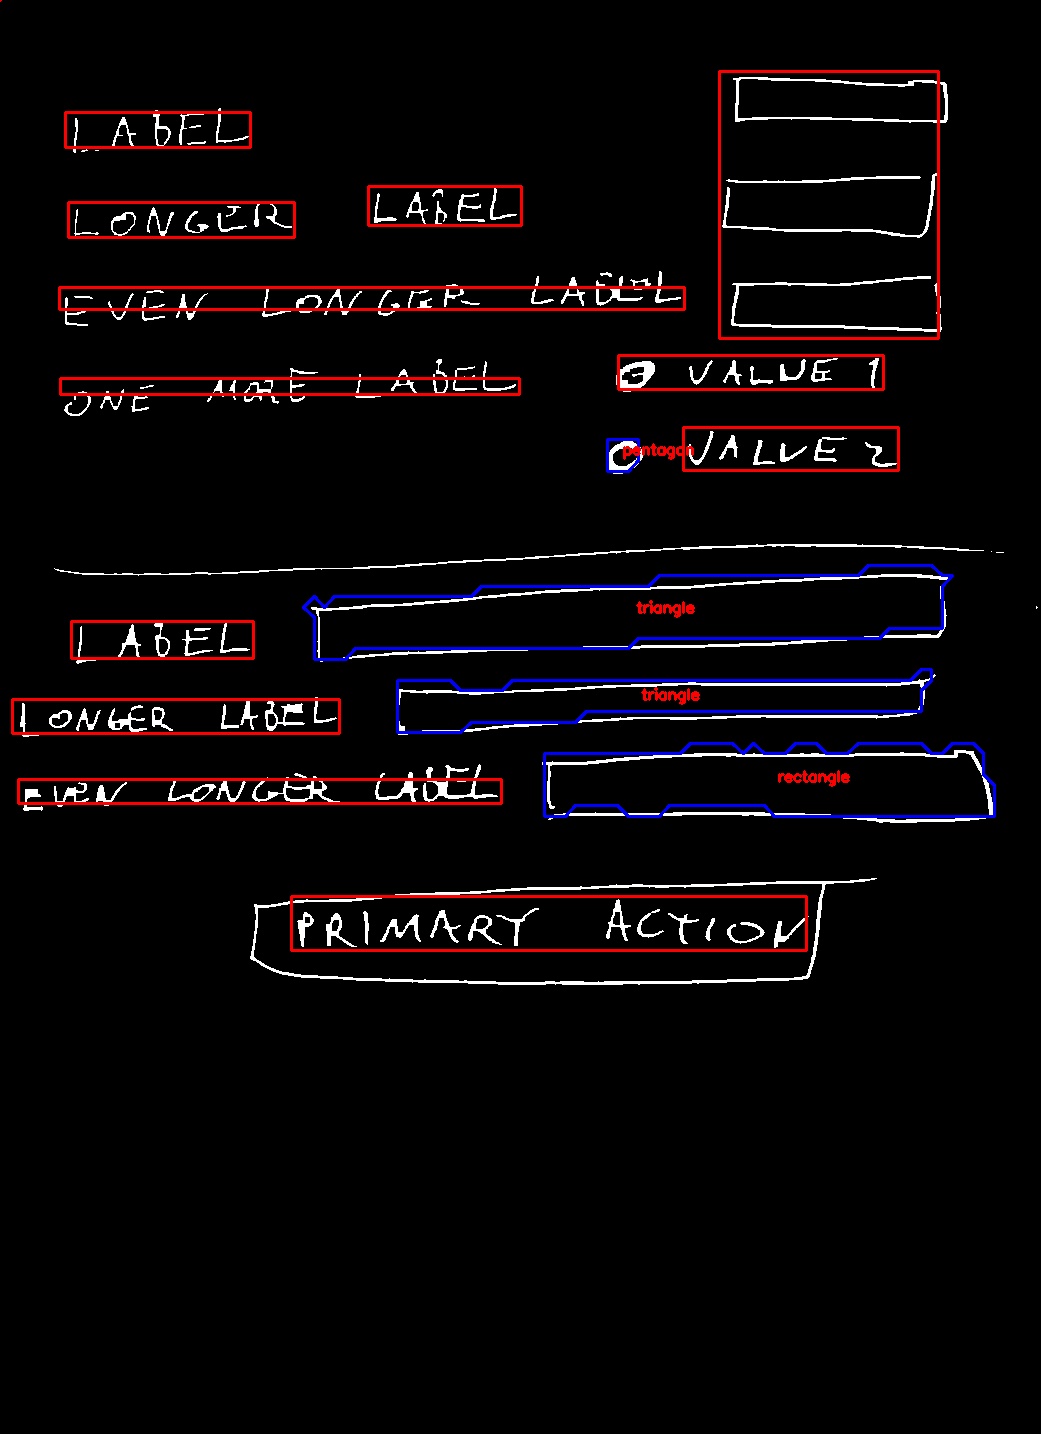 LABEL
LONGER LABEL
EVEN LONGER LABEL
ONE MORE LABEL
VALUE 1
pentagon VALUE 2
triangle
LABEL
triangle
LONGER LABEL
rectangle
EVEN LONGER LABEL
PRIMARY ACTION